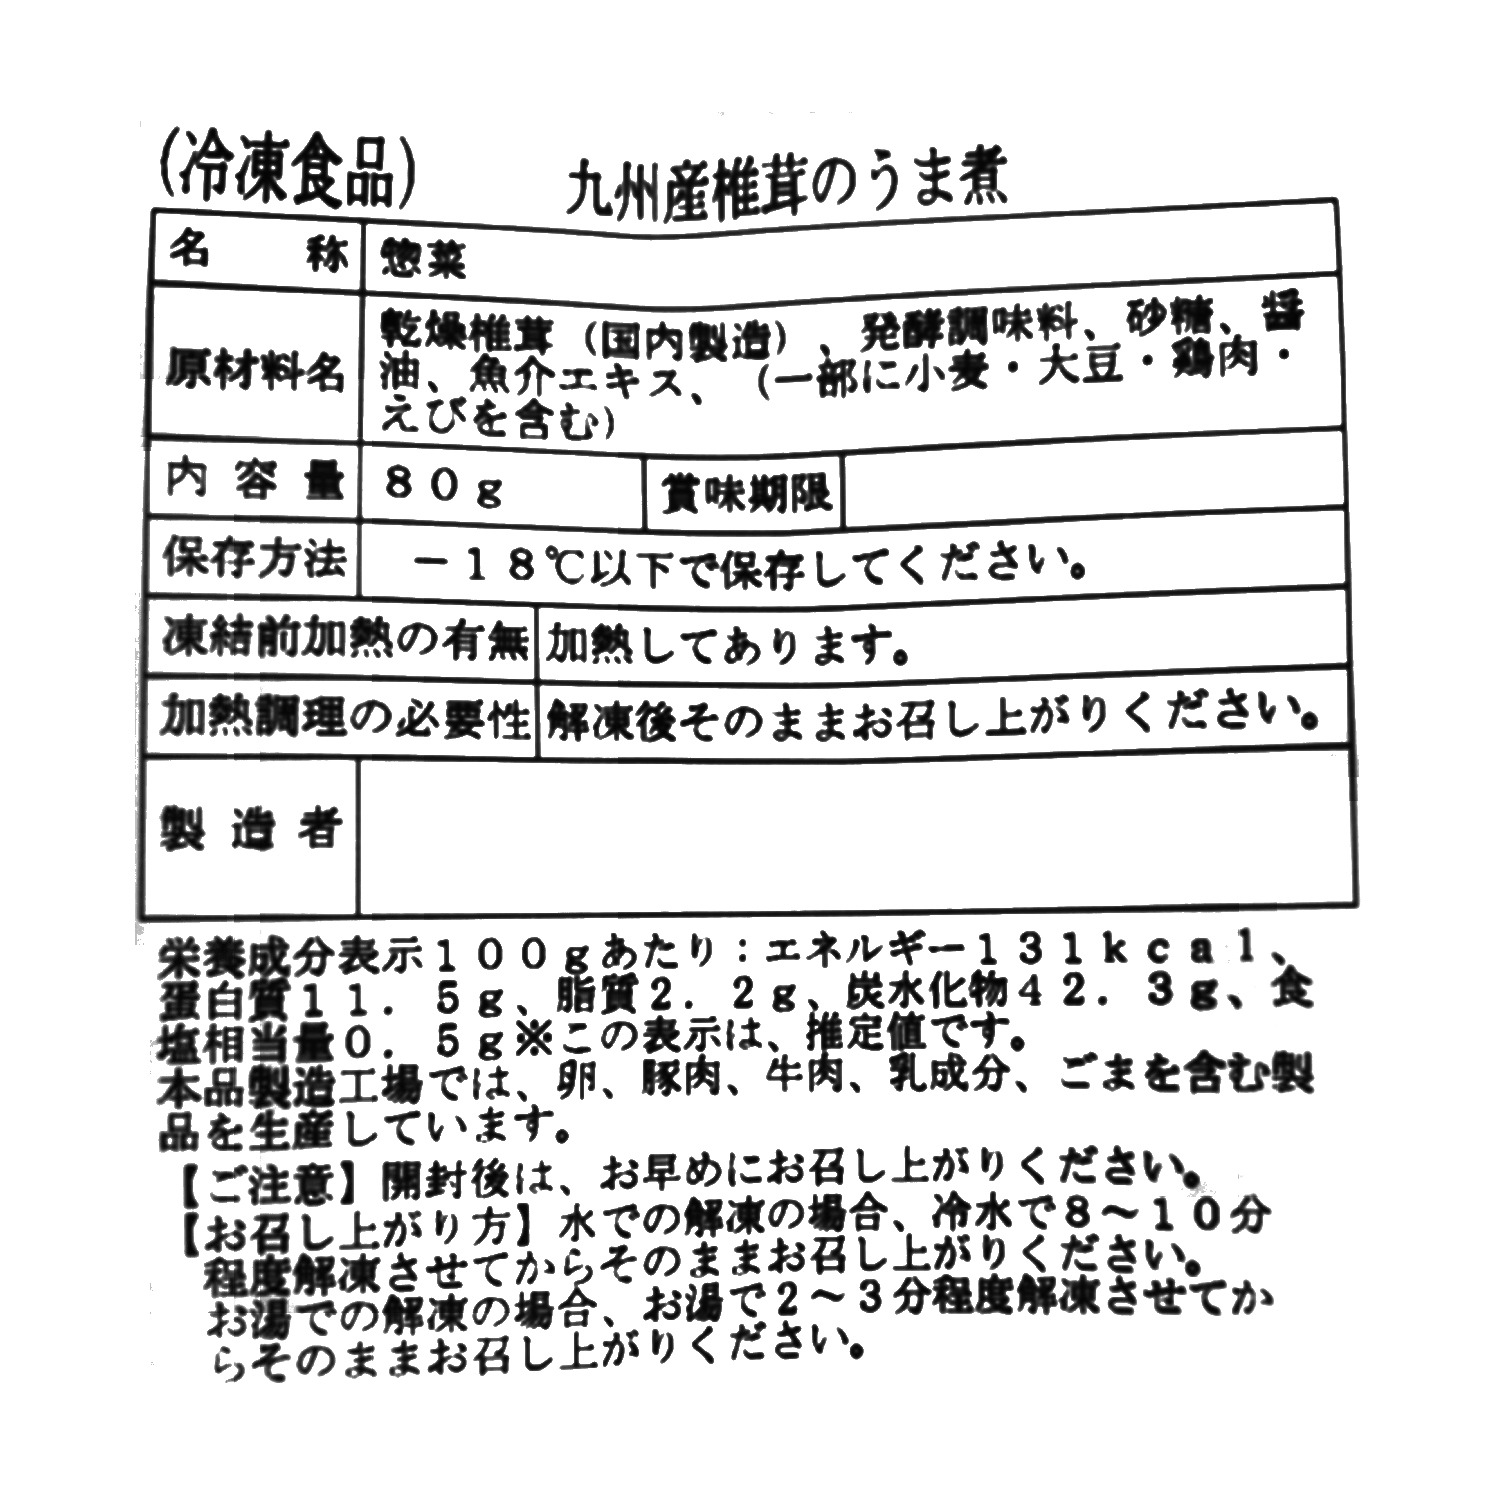 (冷凍食品) 九州産椎茸のうま煮
名称 惣菜
原材料名 乾燥椎茸（国内製造）、発酵調味料、砂糖、醤
油、魚介エキス、（一部に小麦・大豆・鶏肉・
えびを含む）
内容量 ８０ｇ 賞味期限
保存方法 －１８℃以下で保存してください。
凍結前加熱の有無 加熱してあります。
加熱調理の必要性 解凍後そのままお召し上がりください。
製造者
栄養成分表示１００ｇあたり：エネルギー１３１ｋｃａｌ、
蛋白質１１．５ｇ、脂質２．２ｇ、炭水化物４２．３ｇ、食
塩相当量０．５ｇ※この表示は、推定値です。
本品製造工場では、卵、豚肉、牛肉、乳成分、ごまを含む製
品を生産しています。
【ご注意】開封後は、お早めにお召し上がりください。
【お召し上がり方】水での解凍の場合、冷水で８～１０分
程度解凍させてからそのままお召し上がりください。
お湯での解凍の場合、お湯で２～３分程度解凍させてか
らそのままお召し上がりください。